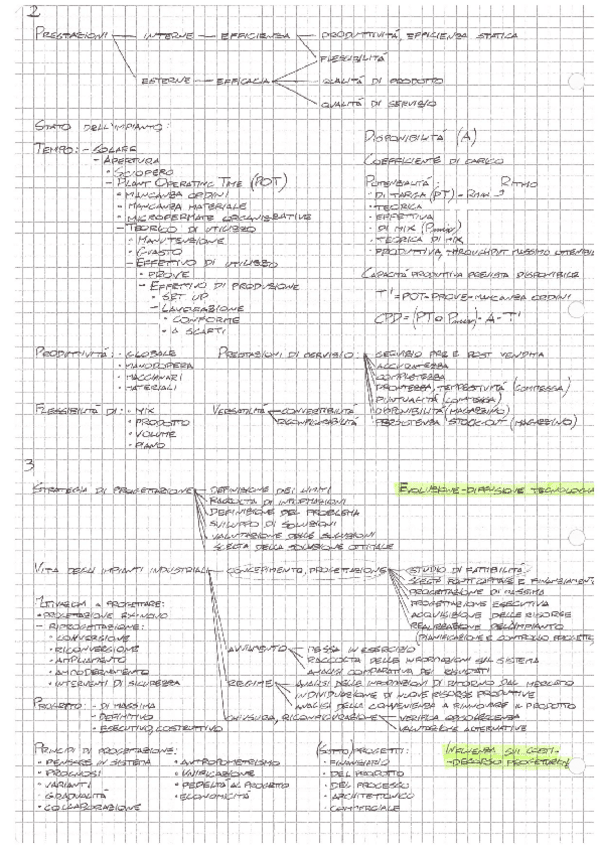 2
PRESTAZIONI INTERNE EFFICIENZA PRODUTTIVITÀ, EFFICIENZA STATICA
FLESSIBILITÀ
ESTERNE EFFICACIA QUALITÀ DI PRODOTTO
QUALITÀ DI SERVIZIO
STATO DELL'IMPIANTO:
TEMPO: - SOLARE
- APERTURA
• SCIOPERO
- PLANT OPERATING TIME (POT)
• MANCANZA ORDINI
• MANCANZA MATERIALE
• MICROFERMATE ORGANIZZATIVE
- TEORICO DI UTILIZZO
• MANUTENZIONE
• GUASTO
- EFFETTIVO DI UTILIZZO
• PROVE
- EFFETTIVO DI PRODUZIONE
• SET UP
- LAVORAZIONE
• CONFORME
• SCARTI
DISPONIBILITÀ (A)
COEFFICIENTE DI CARICO
POTENZIALITÀ: RITMO
• DI TARGA (PT)
• TEORICA
• EFFETTIVA
• DI MIX
• TEORICA DI MIX
• PRODUTTIVA, THROUGHPUT MASSIMO
CAPACITÀ PRODUTTIVA PREVISTA DISPONIBILE
T' = POT - PROVE - MANCANZA ORDINI
PRODUTTIVITÀ: • GLOBALE
• MANODOPERA
• MACCHINARI
• MATERIALI
PRESTAZIONI DI SERVIZIO: SERVIZIO PRE E POST VENDITA
ACCURATEZZA
COMPLETEZZA
PRONTEZZA, TEMPESTIVITÀ (COMMESSA)
PUNTUALITÀ (COMMESSA)
DISPONIBILITÀ (MAGAZZINO)
PERSISTENZA STOCKOUT (MAGAZZINO)
FLESSIBILITÀ DI: • MIX
• PRODOTTO
• VOLUME
• PIANO
VERSATILITÀ CONVERTIBILITÀ
RICONFIGURABILITÀ
3
STRATEGIA DI PROGETTAZIONE DEFINIZIONE DEI LIMITI
RACCOLTA DI INFORMAZIONI
DEFINIZIONE DEL PROBLEMA
SVILUPPO DI SOLUZIONI
VALUTAZIONE DELLE SOLUZIONI
SCELTA DELLA SOLUZIONE OTTIMALE
EVOLUZIONE-DIFFUSIONE TECNOLOGIA
VITA DEGLI IMPIANTI INDUSTRIALI CONCEPIMENTO, PROGETTAZIONE STUDIO DI FATTIBILITÀ
SCELTA FONTI CAPITALE E FINANZIAMENTI
PROGETTAZIONE DI MASSIMA
PROGETTAZIONE ESECUTIVA
ACQUISIZIONE DELLE RISORSE
REALIZZAZIONE DELL'IMPIANTO
(PIANIFICAZIONE E CONTROLLO PROGETTI)
A PROGETTARE:
• PROGETTAZIONE EX-NOVO
- RIPROGETTAZIONE:
• CONVERSIONE
• RICONVERSIONE
• AMPLIAMENTO
• AMMODERNAMENTO
• INTERVENTI DI SICUREZZA
AVVIAMENTO MESSA IN ESERCIZIO
RACCOLTA DELLE INFORMAZIONI SUL SISTEMA
ANALISI COMPARATIVA DEI RISULTATI
REGIME ANALISI DELLE INFORMAZIONI DI RITORNO DAL MERCATO
INDIVIDUAZIONE DI NUOVE RISORSE PRODUTTIVE
ANALISI DELLA CONVENIENZA A RINNOVARE IL PRODOTTO
CHIUSURA, RICONFIGURAZIONE VERIFICA OBSOLESCENZA
VALUTAZIONE ALTERNATIVE
PROGETTO: - DI MASSIMA
- DEFINITIVO
- ESECUTIVO, COSTRUTTIVO
PRINCIPI DI PROGETTAZIONE:
• PENSARE IN SISTEMA
• PROGNOSI
• VARIANTI
• GRADUALITÀ
• COLLABORAZIONE
• ANTROPOMETRISMO
• UNIFICAZIONE
• FEDELTÀ AL PROGETTO
• ECONOMICITÀ
(SOTTO)PROGETTI:
• FINANZIARIO
• DEL PRODOTTO
• DEL PROCESSO
• ARCHITETTONICO
• COMMERCIALE
INFLUENZA SUI COSTI-